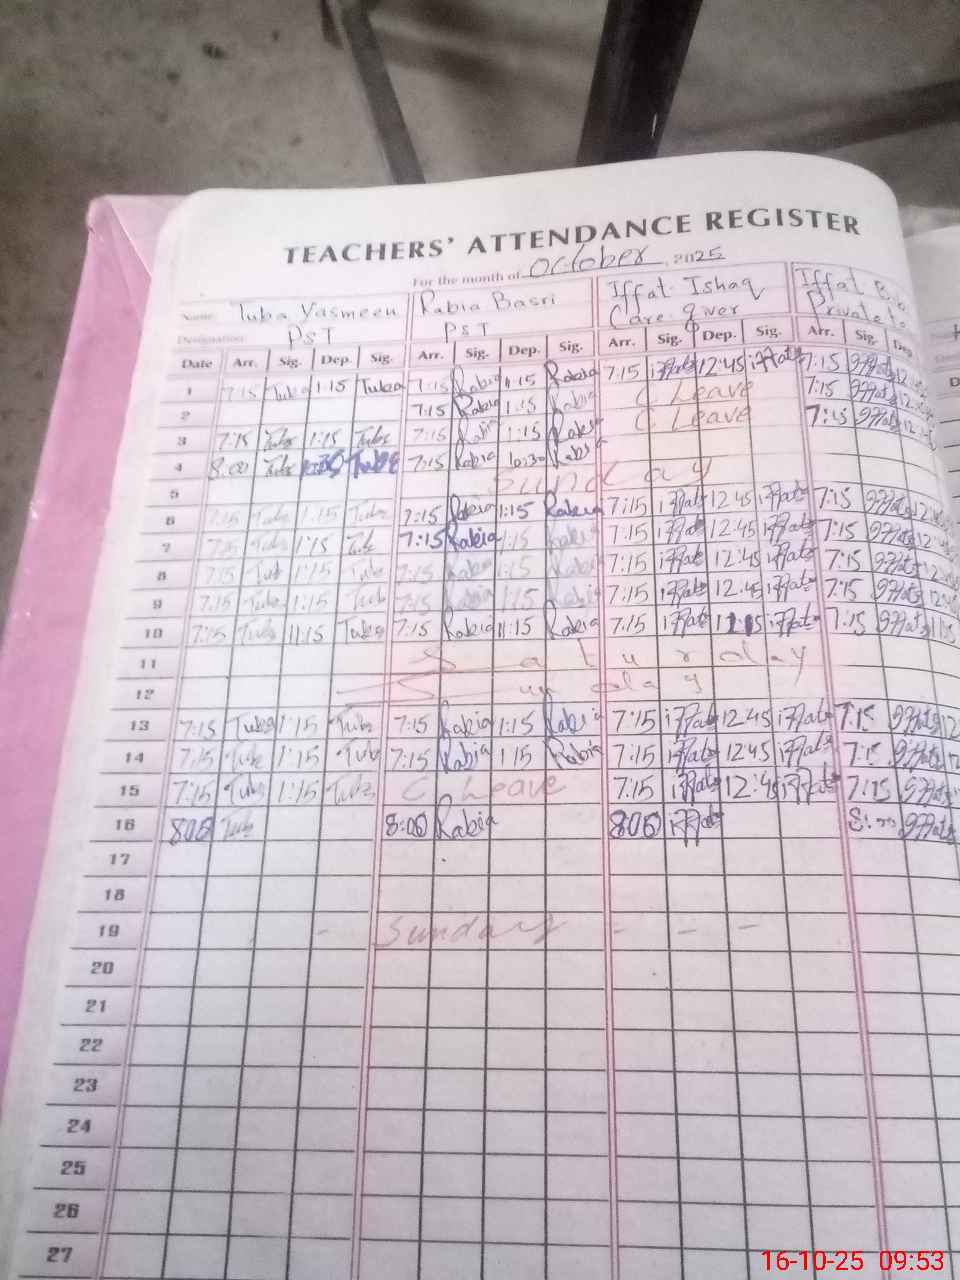 TEACHERS' ATTENDANCE REGISTER
For the month of October, 2025
Name Tuba Yasmeen Rabia Basri Iffat Ishaq Iffat
Designation PST PST Care giver Private
Date Arr. Sig. Dep. Sig. Arr. Sig. Dep. Sig. Arr. Sig. Dep. Sig. Arr. Sig. Dep
1 7:15 Tuba 1:15 Tuba 7:15 Rabia 1:15 Rabia 7:15 iffat 12:45 iffat 7:15 Iffat
2 7:15 Rabia 1:15 Rabia C Leave 7:15 Iffat
3 7:15 Tuba 1:15 Tuba 7:15 Rabia 1:15 Rabia C Leave 7:15 Iffat
4 8:00 Tuba Tuba 7:15 Rabia 10:30 Rabia
5 Sunday
6 7:15 Tuba 1:15 Tuba 7:15 Rabia 1:15 Rabia 7:15 iffat 12:45 iffat 7:15 Iffat
7 7:15 Tuba 1:15 Tuba 7:15 Rabia 1:15 Rabia 7:15 iffat 12:45 iffat 7:15 Iffat
8 7:15 Tuba 1:15 Tuba 7:15 Rabia 1:15 Rabia 7:15 iffat 12:45 iffat 7:15 Iffat
9 7:15 Tuba 1:15 Tuba 7:15 Rabia 1:15 Rabia 7:15 iffat 12:45 iffat 7:15 Iffat
10 7:15 Tuba 11:15 Tuba 7:15 Rabia 11:15 Rabia 7:15 iffat iffat 7:15 Iffat
11 Saturday
12 Sunday
13 7:15 Tuba 1:15 Tuba 7:15 Rabia 1:15 Rabia 7:15 iffat 12:45 iffat 7:15 Iffat
14 7:15 Tuba 1:15 Tuba 7:15 Rabia 1:15 Rabia 7:15 iffat 12:45 iffat 7:15 Iffat
15 7:15 Tuba 1:15 Tuba C Leave 7:15 iffat 12:45 iffat 7:15 Iffat
16 8:00 Tuba 8:00 Rabia 8:00 iffat 8:00 Iffat
17
18
19 - Sunday - - -
20
21
22
23
24
25
26
27
16-10-25 09:53